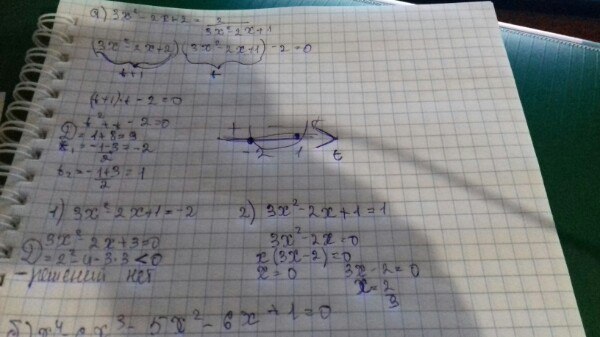 а) 3x² - 2x + 2 = 2 / (3x² - 2x + 1)
(3x² - 2x + 2) (3x² - 2x + 1) - 2 = 0
t+1 t
(t+1)·t - 2 = 0
t² + t - 2 = 0
D = 1 + 8 = 9
t₁ = (-1-3)/2 = -2
t₂ = (-1+3)/2 = 1
+ - +
-2 1 t
1) 3x² - 2x + 1 = -2
3x² - 2x + 3 = 0
D = 2² - 4·3·3 < 0
- решений нет
2) 3x² - 2x + 1 = 1
3x² - 2x = 0
x (3x - 2) = 0
x = 0 3x - 2 = 0
x = 2/3
б) x⁴ x³ - 5x² - 6x + 1 = 0